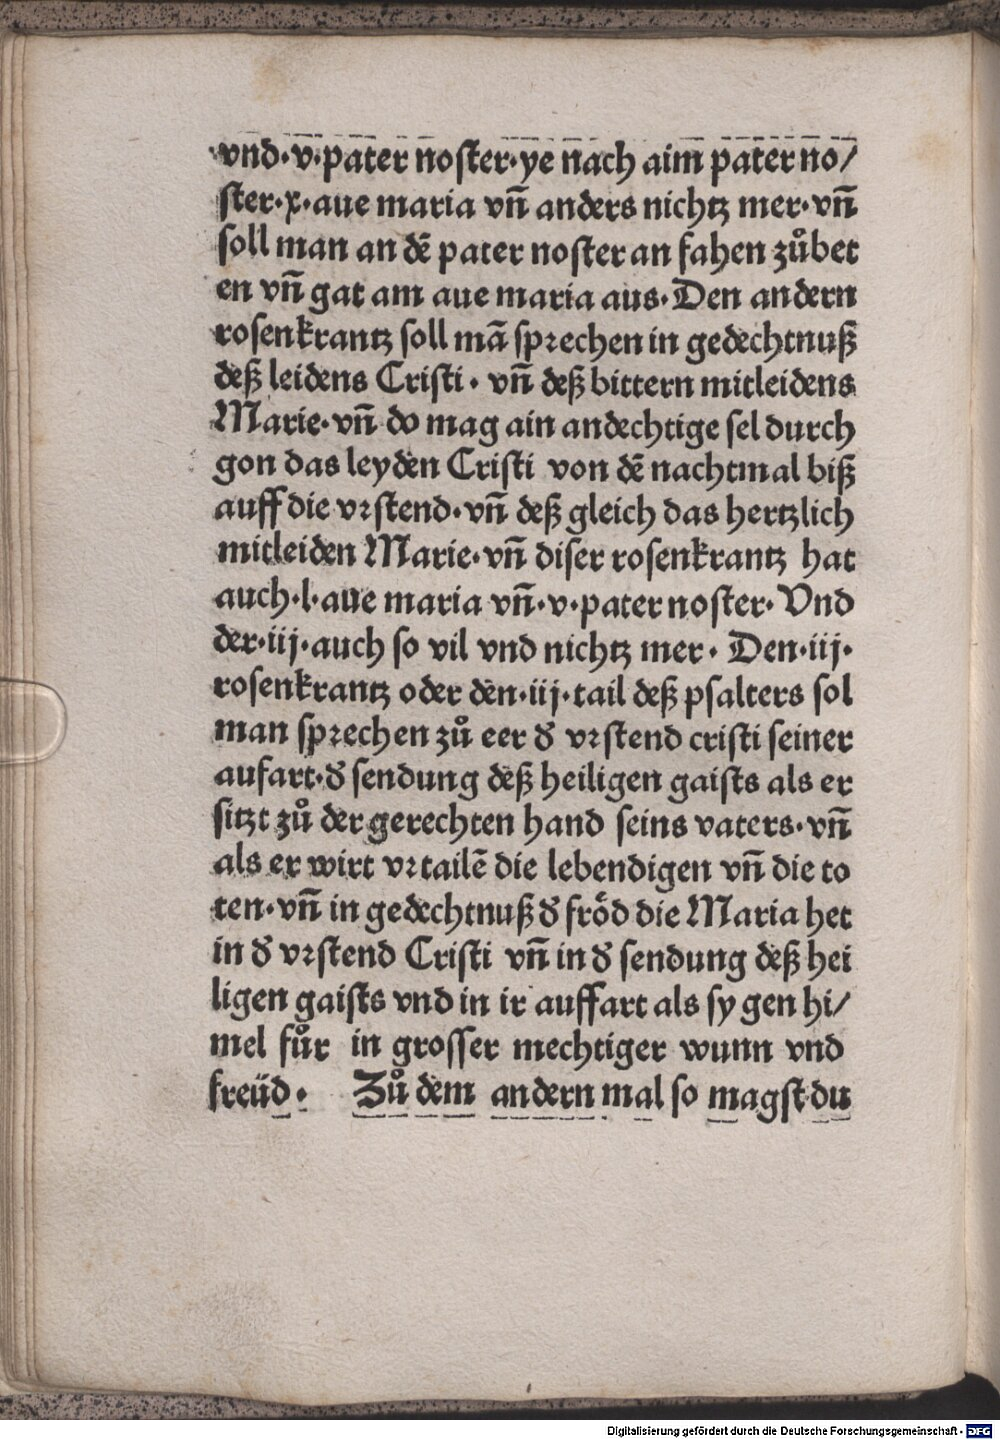 vnd·v·pater noster·ye nach aim pater no/
ster·x·aue maria vn̄ anders nichtz mer·vn̄
soll man an dē pater noster an fahen zůbet
en vn̄ gat am aue maria aus·Den andern
rosenkrantz soll mā sprechen in gedechtnuß
deß leidens Cristi·vn̄ deß bittern mitleidens
Marie·vn̄ do mag ain andechtige sel durch
gon das leyden Cristi von dē nachtmal biß
auff die vrstend·vn̄ deß gleich das hertzlich
mitleiden Marie·vn̄ diser rosenkrantz hat
auch·l·aue maria vn̄·v·pater noster·Vnd
der·iij·auch so vil vnd nichtz mer·Den·iij·
rosenkrantz oder den·iij·tail deß psalters sol
man sprechen zů eer d' vrstend cristi seiner
aufart·d' sendung deß heiligen gaists als er
sitzt zů der gerechten hand seins vaters·vn̄
als er wirt vrtailē die lebendigen vn̄ die to
ten·vn̄ in gedechtnuß d' fröd die Maria het
in d' vrstend Cristi vn̄ in d' sendung deß hei
ligen gaists vnd in ir auffart als sy gen hi/
mel fůr in grosser mechtiger wunn vnd
freüd· Zů dem andern mal so magst du
Digitalisierung gefördert durch die Deutsche Forschungsgemeinschaft - DFG